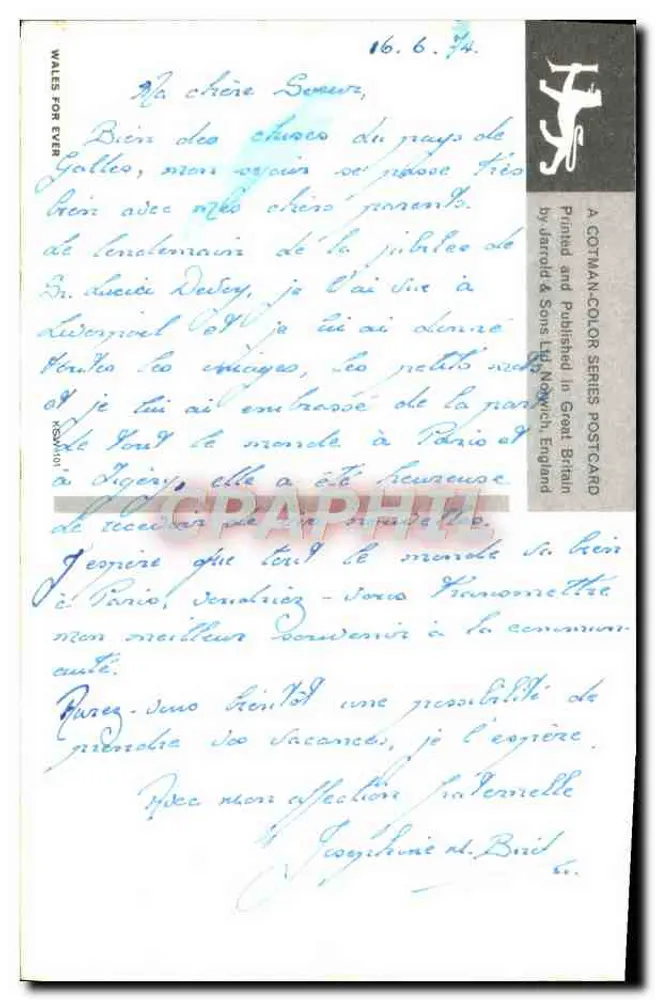 16.6.74.
Ma chère Soeur,
Bien des choses du pays de
Galles, mon séjour se passe très
bien avec mes chers parents.
Le lendemain de la jubilée de
Sr. Lucie Devoy, je l'ai vue à
Liverpool et je lui ai donné
toutes les images, les petits mots
et je lui ai embrassé de la part
de tout le monde à Paris et
à Tigery, elle a été heureuse
de recevoir de nouvelles.
J'espère que tout le monde va bien
à Paris, voudriez-vous transmettre
mon meilleur souvenir à la commun-
auté.
Aurez-vous bientôt une possibilité de
prendre vos vacances, je l'espère.
Avec mon affection fraternelle
Joséphine M.
WALES FOR EVER
A COTMAN-COLOR SERIES POSTCARD
Printed and Published in Great Britain
by Jarrold & Sons Ltd, Norwich, England
CPAPHIL